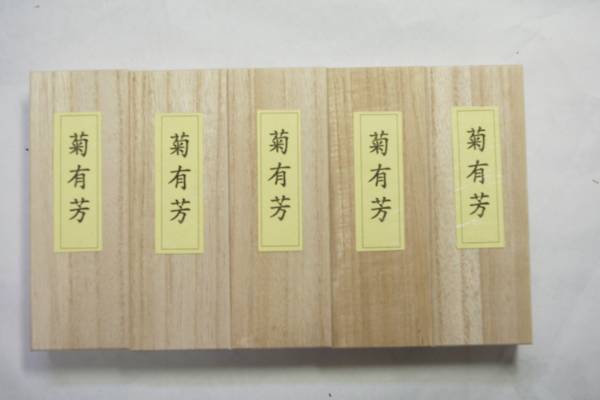 菊有芳
菊有芳
菊有芳
菊有芳
菊有芳